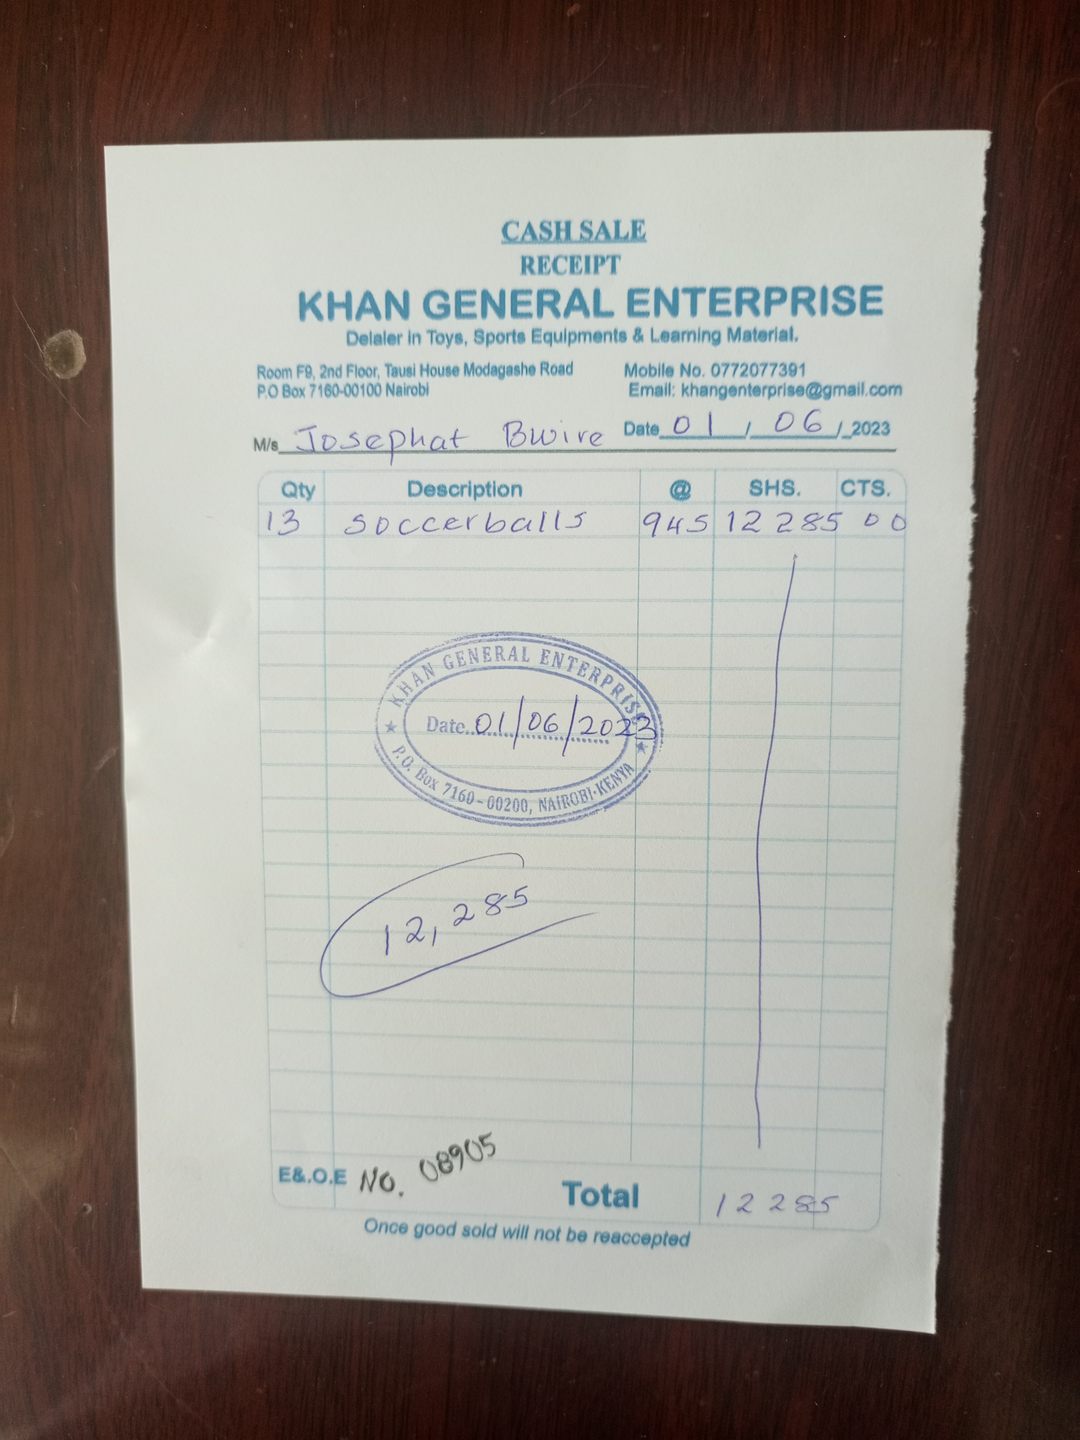 CASH SALE
RECEIPT
KHAN GENERAL ENTERPRISE
Delaler in Toys, Sports Equipments & Learning Material.
Room F9, 2nd Floor, Tausi House Modagashe Road Mobile No. 0772077391
P.O Box 7160-00100 Nairobi Email: khangenterprise@gmail.com
M/s Josephat Bwire Date 01 / 06 / 2023
Qty Description @ SHS. CTS.
13 soccerballs 945 12 285 00
KHAN GENERAL ENTERPRISE
Date. 01/06/2023
P.O. Box 7160-00200, NAIROBI-KENYA
12,285
E&.O.E NO. 08905
Total 12 285
Once good sold will not be reaccepted